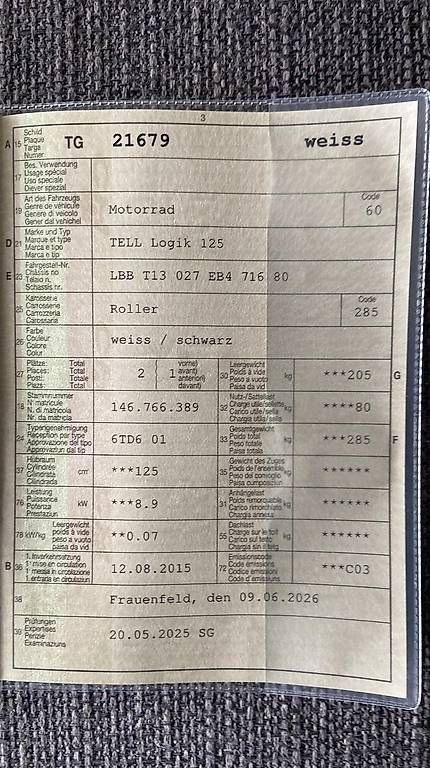 3
A 15 Schild Plaque Targa Numer TG 21679 weiss
17 Bes. Verwendung Usage spécial Uso speciale Diever spezial
19 Art des Fahrzeugs Genre de véhicule Genere di veicolo Gener dal vehichel Motorrad Code 60
D 21 Marke und Typ Marque et type Marca e tipo Marca e tip TELL Logik 125
E 23 Fahrgestell-Nr. Châssis no Telaio n. Schassis nr. LBB T13 027 EB4 716 80
25 Karosserie Carrosserie Carrozzeria Carossaria Roller Code 285
26 Farbe Couleur Colore Colur weiss / schwarz
27 Plätze: Total Places: Total Posti: Totale Plazs: Total 2 ( 1 vorne) avant) anteriori) davant) 30 Leergewicht Poids à vide Peso a vuoto Paisa da vid kg ***205 G
18 Stammnummer N° matricule N. di matricola Nr. da matricla 146.766.389 32 Nutz-/Sattellast Charge utile/sellette Carico utile/sella Chargia utila/sella kg ****80
24 Typengenehmigung Réception par type Approvazione del tipo Approvaziun dal tip 6TD6 01 33 Gesamtgewicht Poids total Peso totale Paisa totala kg ***285 F
37 Hubraum Cylindrée Cilindrata Cilindrada cm³ ***125 35 Gewicht des Zuges Poids de l'ensemble Peso del convoglio Paisa cumposiziun kg ******
76 Leistung Puissance Potenza Prestaziun kW ***8.9 31 Anhängelast Poids remorquable Carico rimorchiato Chargia annexa kg ******
78 kW/kg Leergewicht poids à vide peso a vuoto paisa da vid **0.07 55 Dachlast Charge sur le toit Carico sul tetto Chargia sin il tetg kg ******
B 36 1. Inverkehrsetzung 1re mise en circulation 1a messa in circolazione 1. entrada en circulaziun 12.08.2015 72 Emissionscode Code émissions Codice emissioni Code d'emissiuns ***C03
38 Frauenfeld, den 09.06.2026
39 Prüfungen Expertises Perizie Examinaziuns 20.05.2025 SG